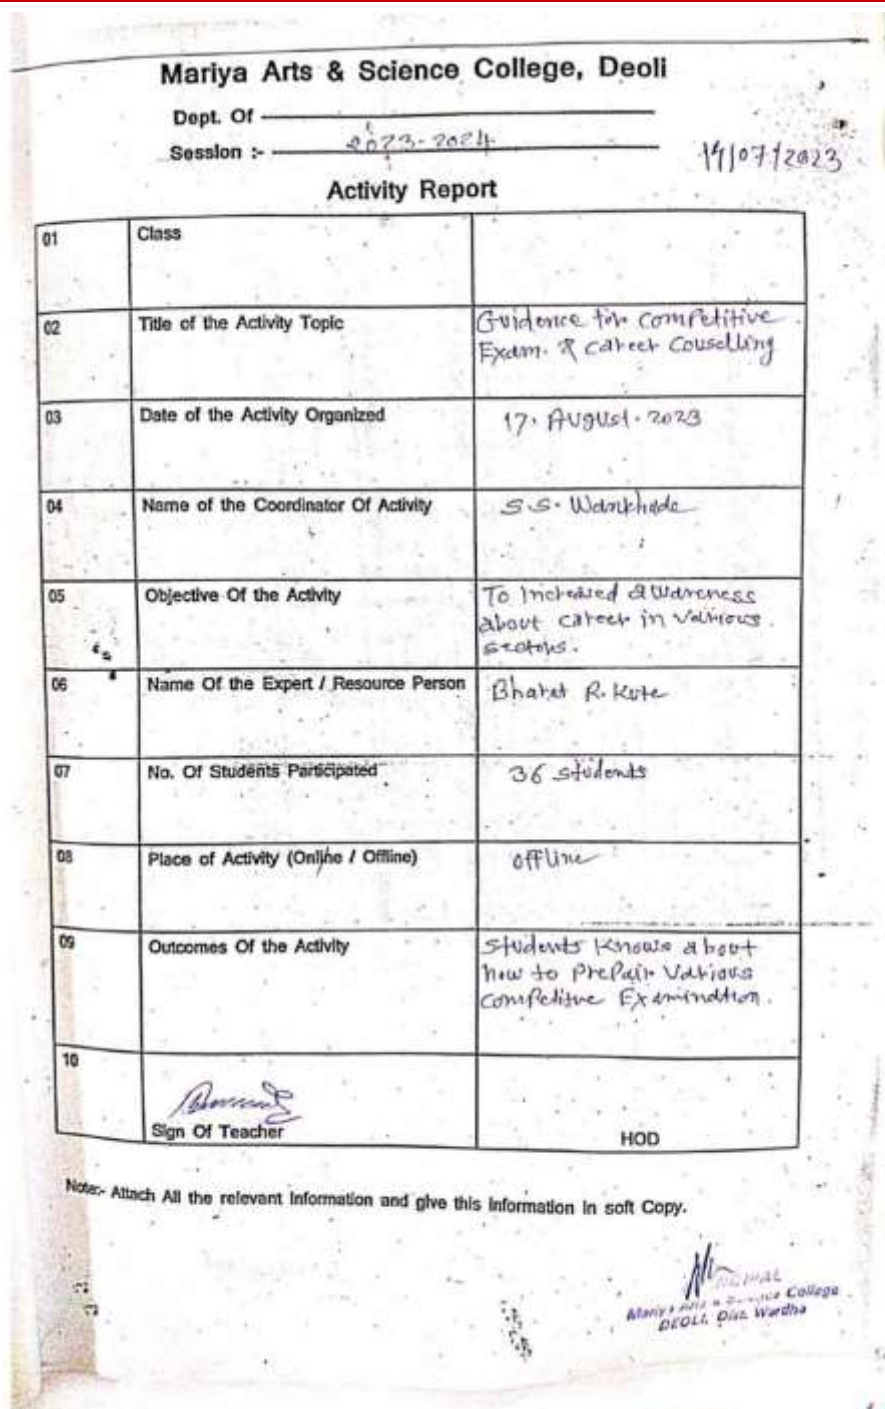 Mariya Arts & Science College, Deoli
Dept. Of
Session :- 2023-2024
17/07/2023
Activity Report
01 Class
02 Title of the Activity Topic Guidence for Competitive
Exam. & Career Couselling
03 Date of the Activity Organized 17. August. 2023
04 Name of the Coordinator Of Activity S.S. Wankhade
05 Objective Of the Activity To Increased awareness
about career in various
sectors.
06 Name Of the Expert / Resource Person Bharat R. Kote
07 No. Of Students Participated 36 students
08 Place of Activity (Online / Offline) offline
09 Outcomes Of the Activity Students Knows about
how to Prepair Various
Competitve Examination.
10
Sign Of Teacher HOD
Note:- Attach All the relevant Information and give this Information in soft Copy.
College
DEOLI, Dist. Wardha